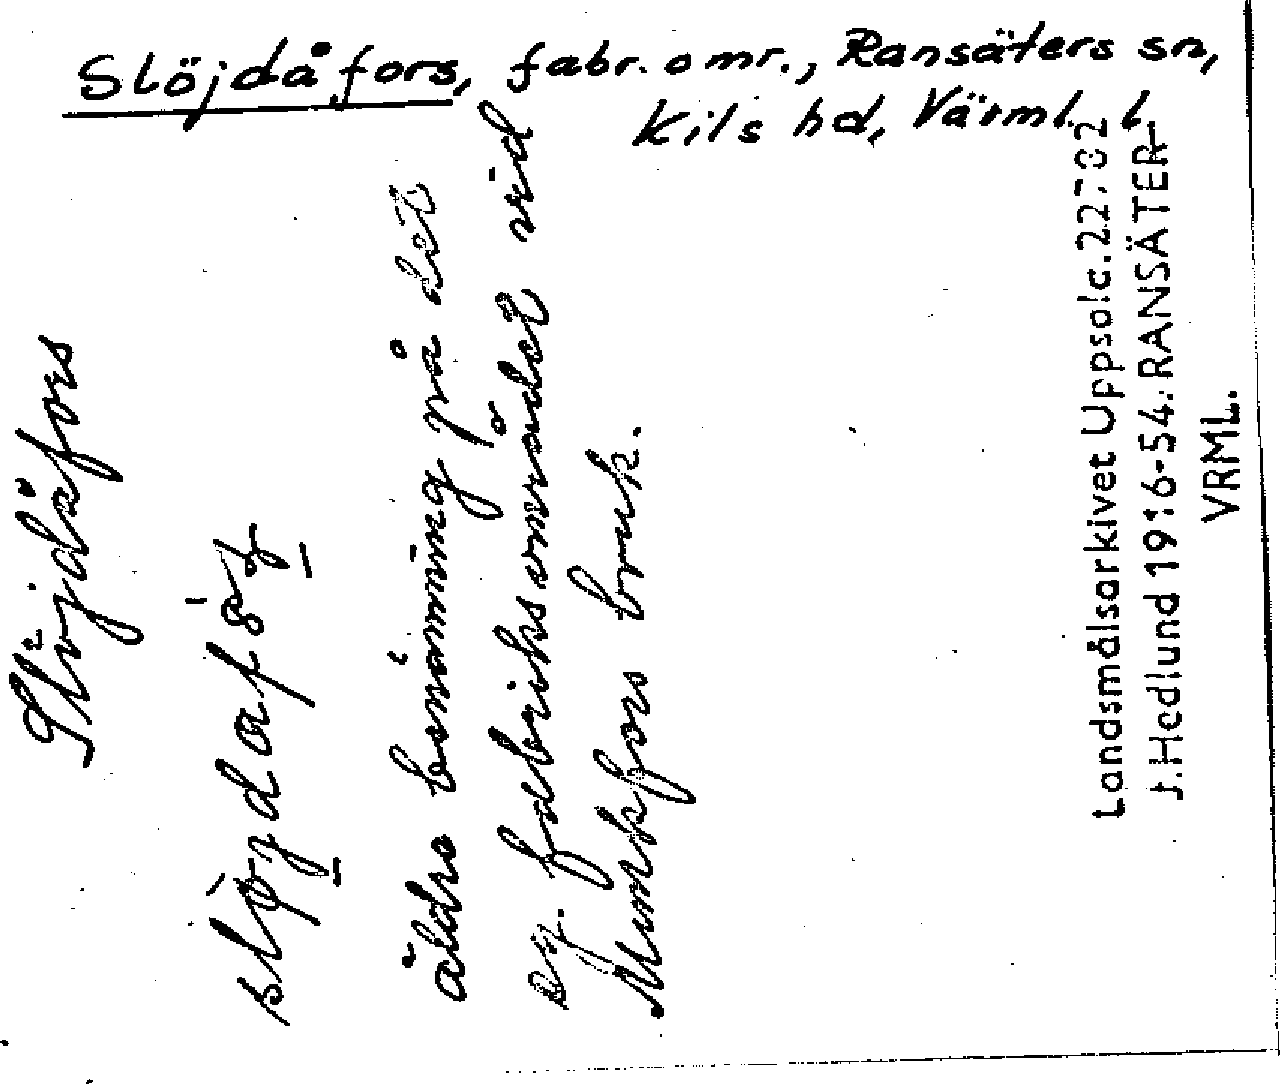 Slöjdåfors, fabr. omr., Ransäters sn,
Kils hd, Värml. l.
Slöjdåfors
äldre benämning på det
eg. fabriksområdet vid
Munkfors bruk.
Landsmålsarkivet Uppsala. 22702
J. Hedlund 1916-54. RANSÄTER
VRML.